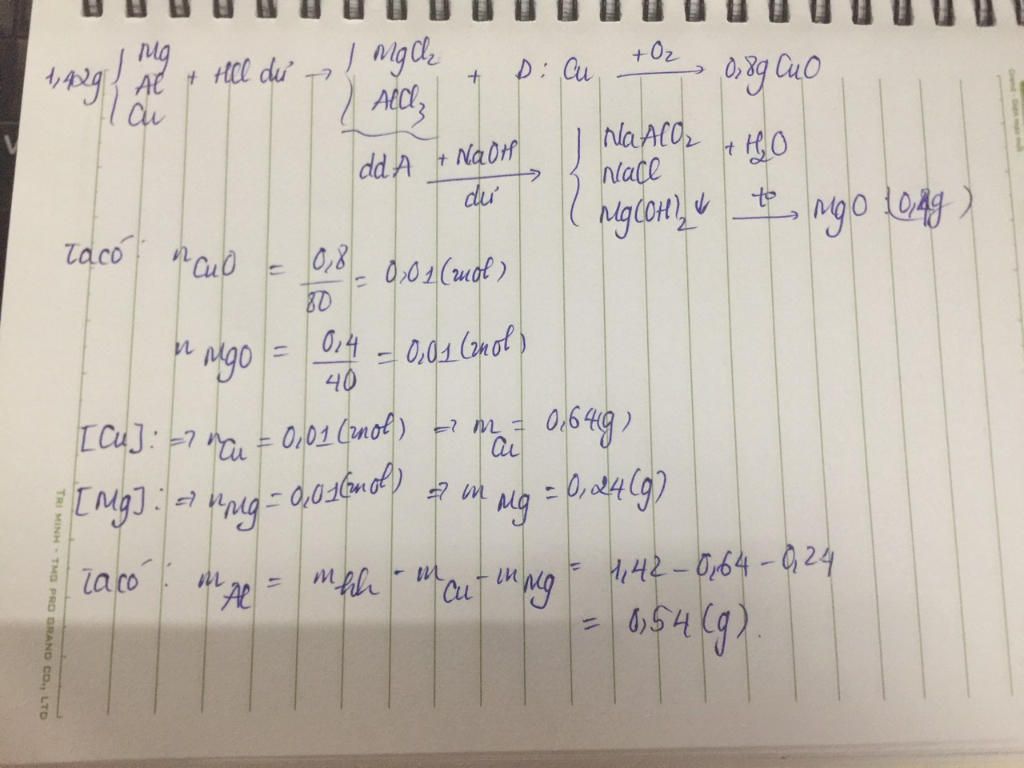 1,42g { Mg Al Cu + HCl dư → { MgCl2 AlCl3 + D : Cu +O2 → 0,8g CuO
ddA +NaOH dư → { NaAlO2 NaCl Mg(OH)2↓ + H2O
Mg(OH)2↓ to → MgO (0,4g)
Ta có : nCuO = 0,8/80 = 0,01 (mol)
nMgO = 0,4/40 = 0,01 (mol)
[Cu] : ⇒ nCu = 0,01 (mol) ⇒ mCu = 0,64g)
[Mg] : ⇒ nMg = 0,01 (mol) ⇒ mMg = 0,24 (g)
Ta có : mAl = mhh - mCu - mMg = 1,42 - 0,64 - 0,24
= 0,54 (g).
TRI MINH - TMG PRO GRAND CO., LTD